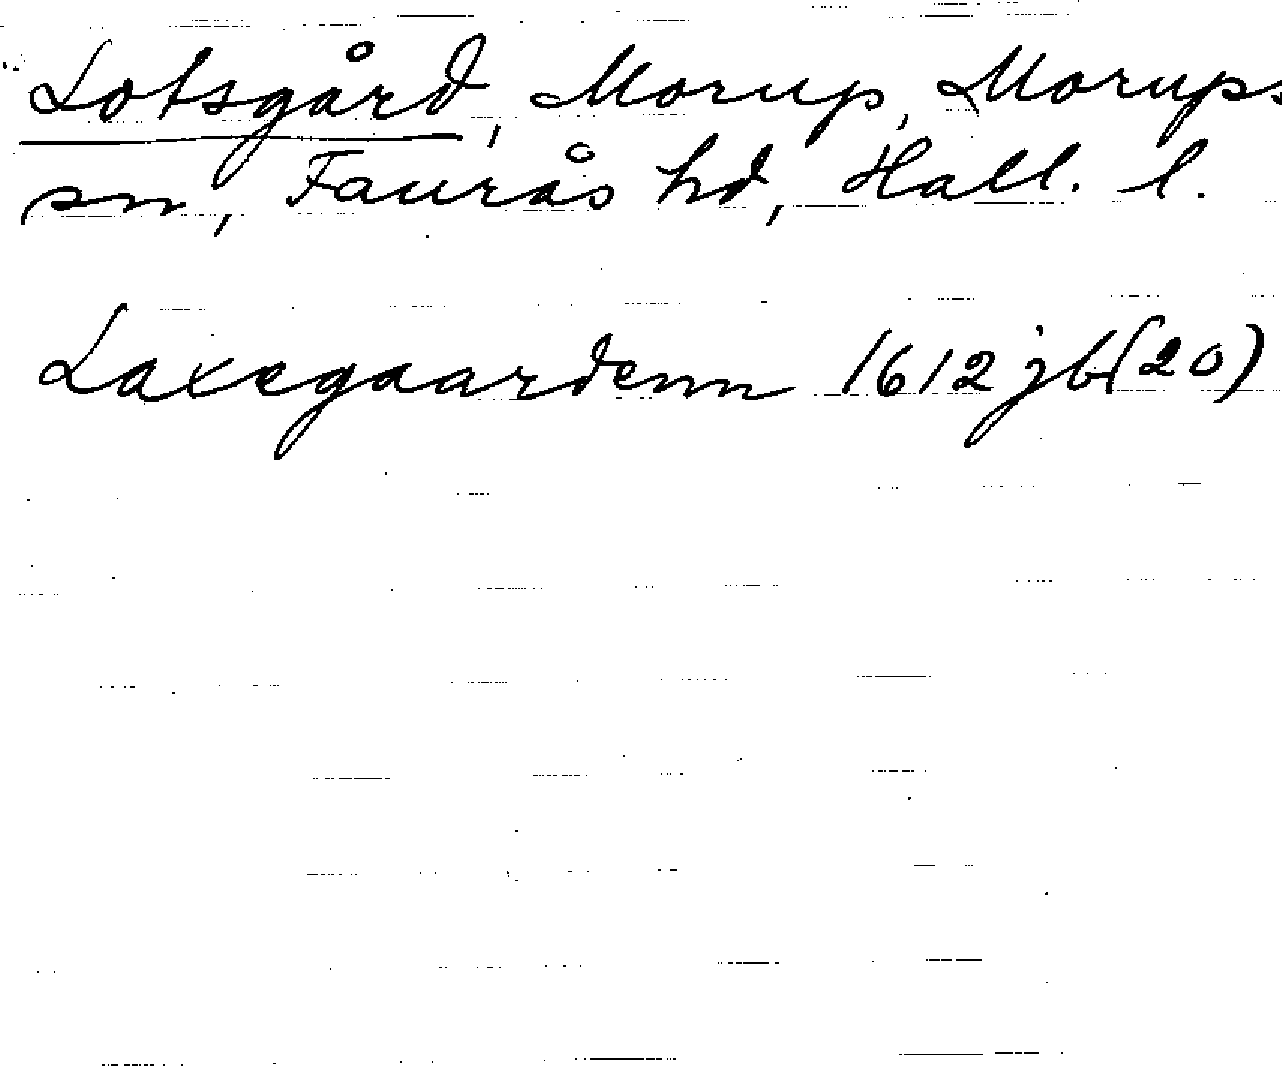 Lotsgård, Morup, Morups
sn, Faurås hd, Hall. l.
Laxegaardenn 1612 jb (20)